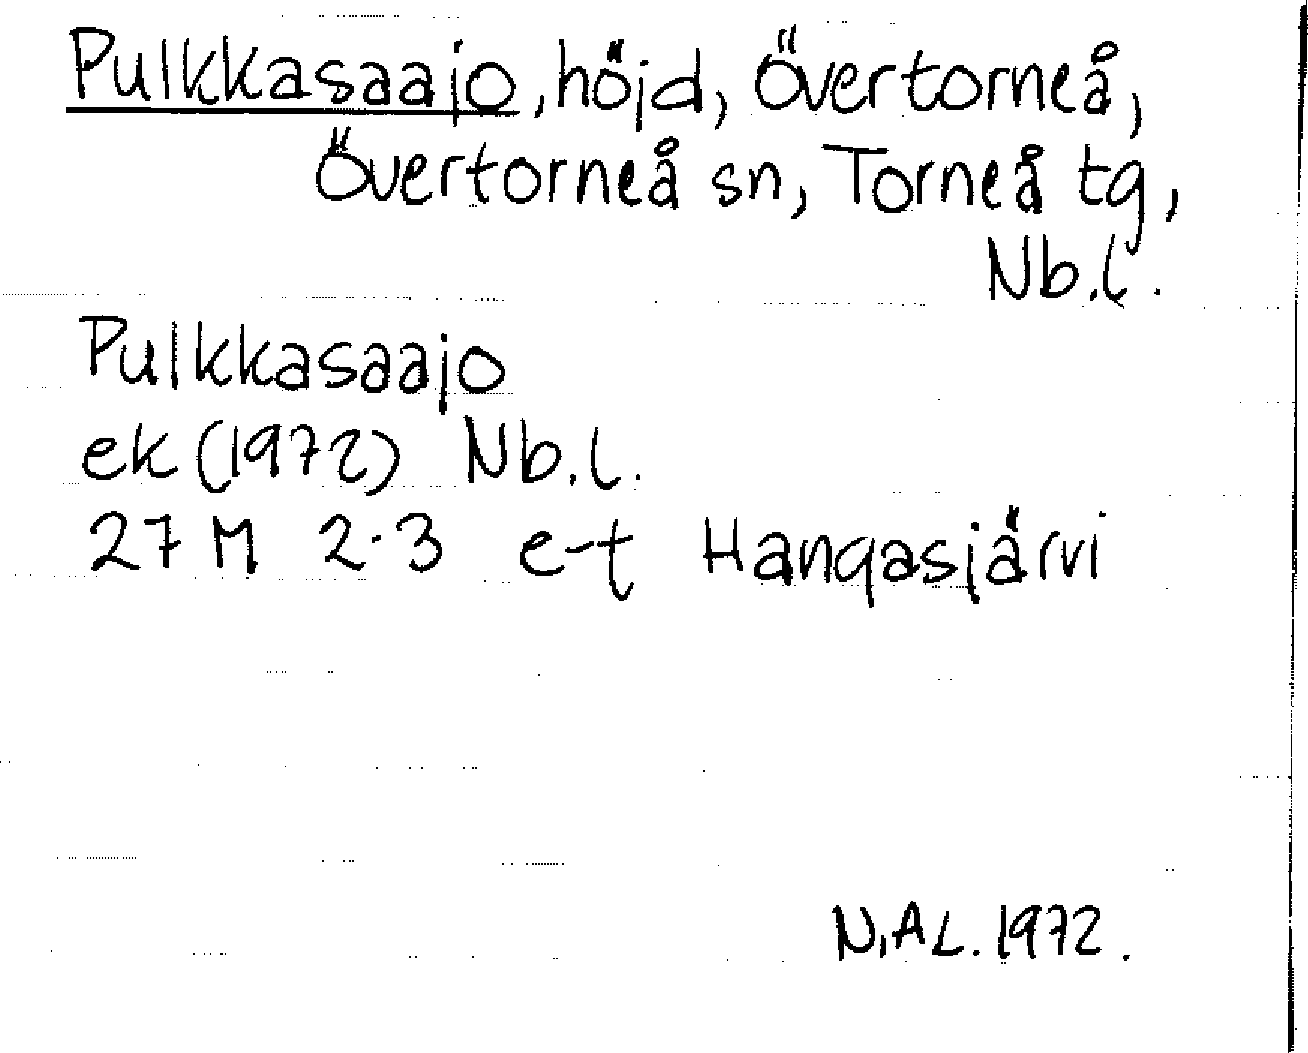 Pulkkasaajo, höjd, Övertorneå,
Övertorneå sn, Torneå tg,
Nb.l.
Pulkkasaajo
ek (1972) Nb.l.
27 M 2-3 e-t Hangasjärvi
N.A.L. 1972.